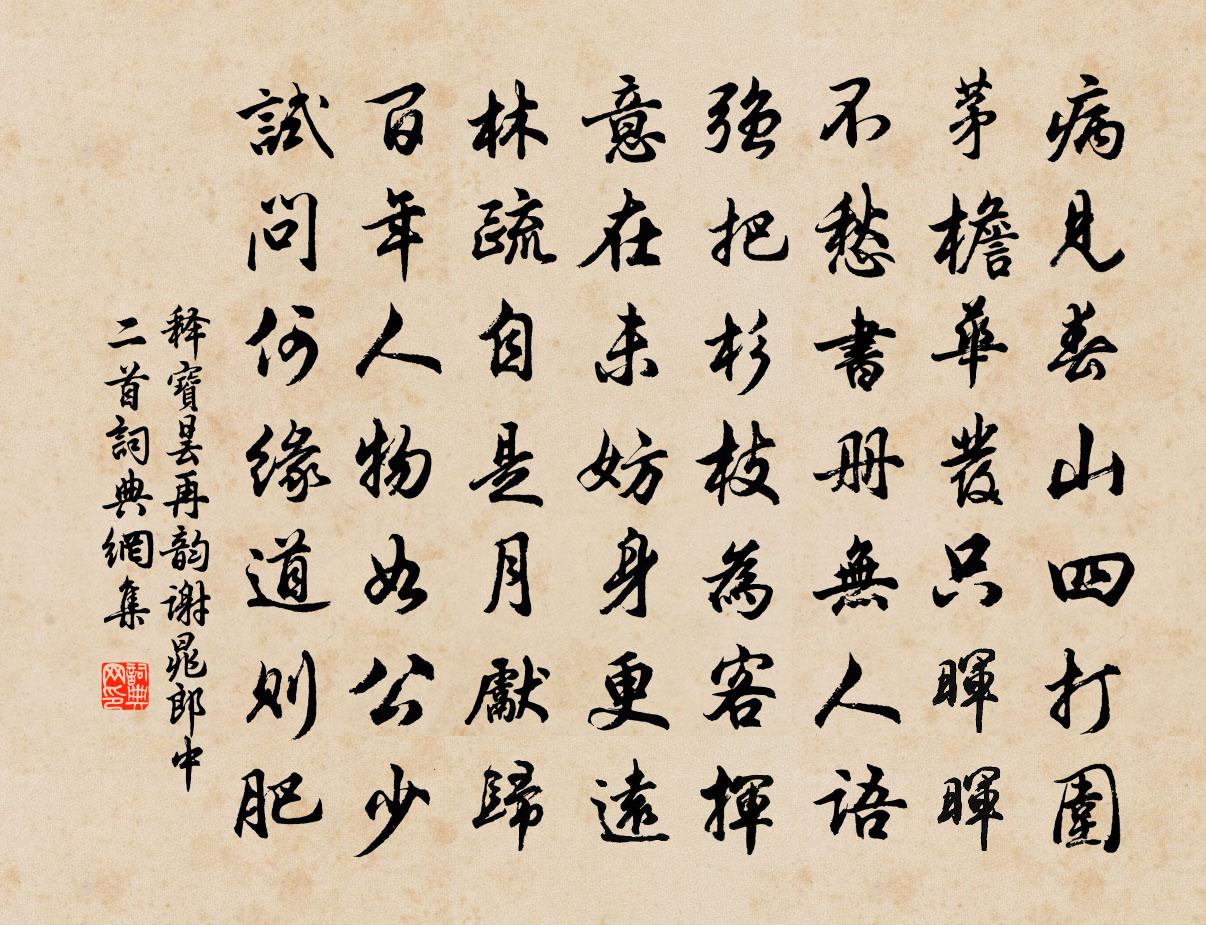 病見春山四打圍
茅檐華發只暉暉
不愁書册無人語
強把杉枝為客揮
意在未妨身更遠
林疏自是月獻歸
百年人物如公少
試問何緣道則肥
释寶曇再韵謝晁郎中
二首詞典網集
詞典网印